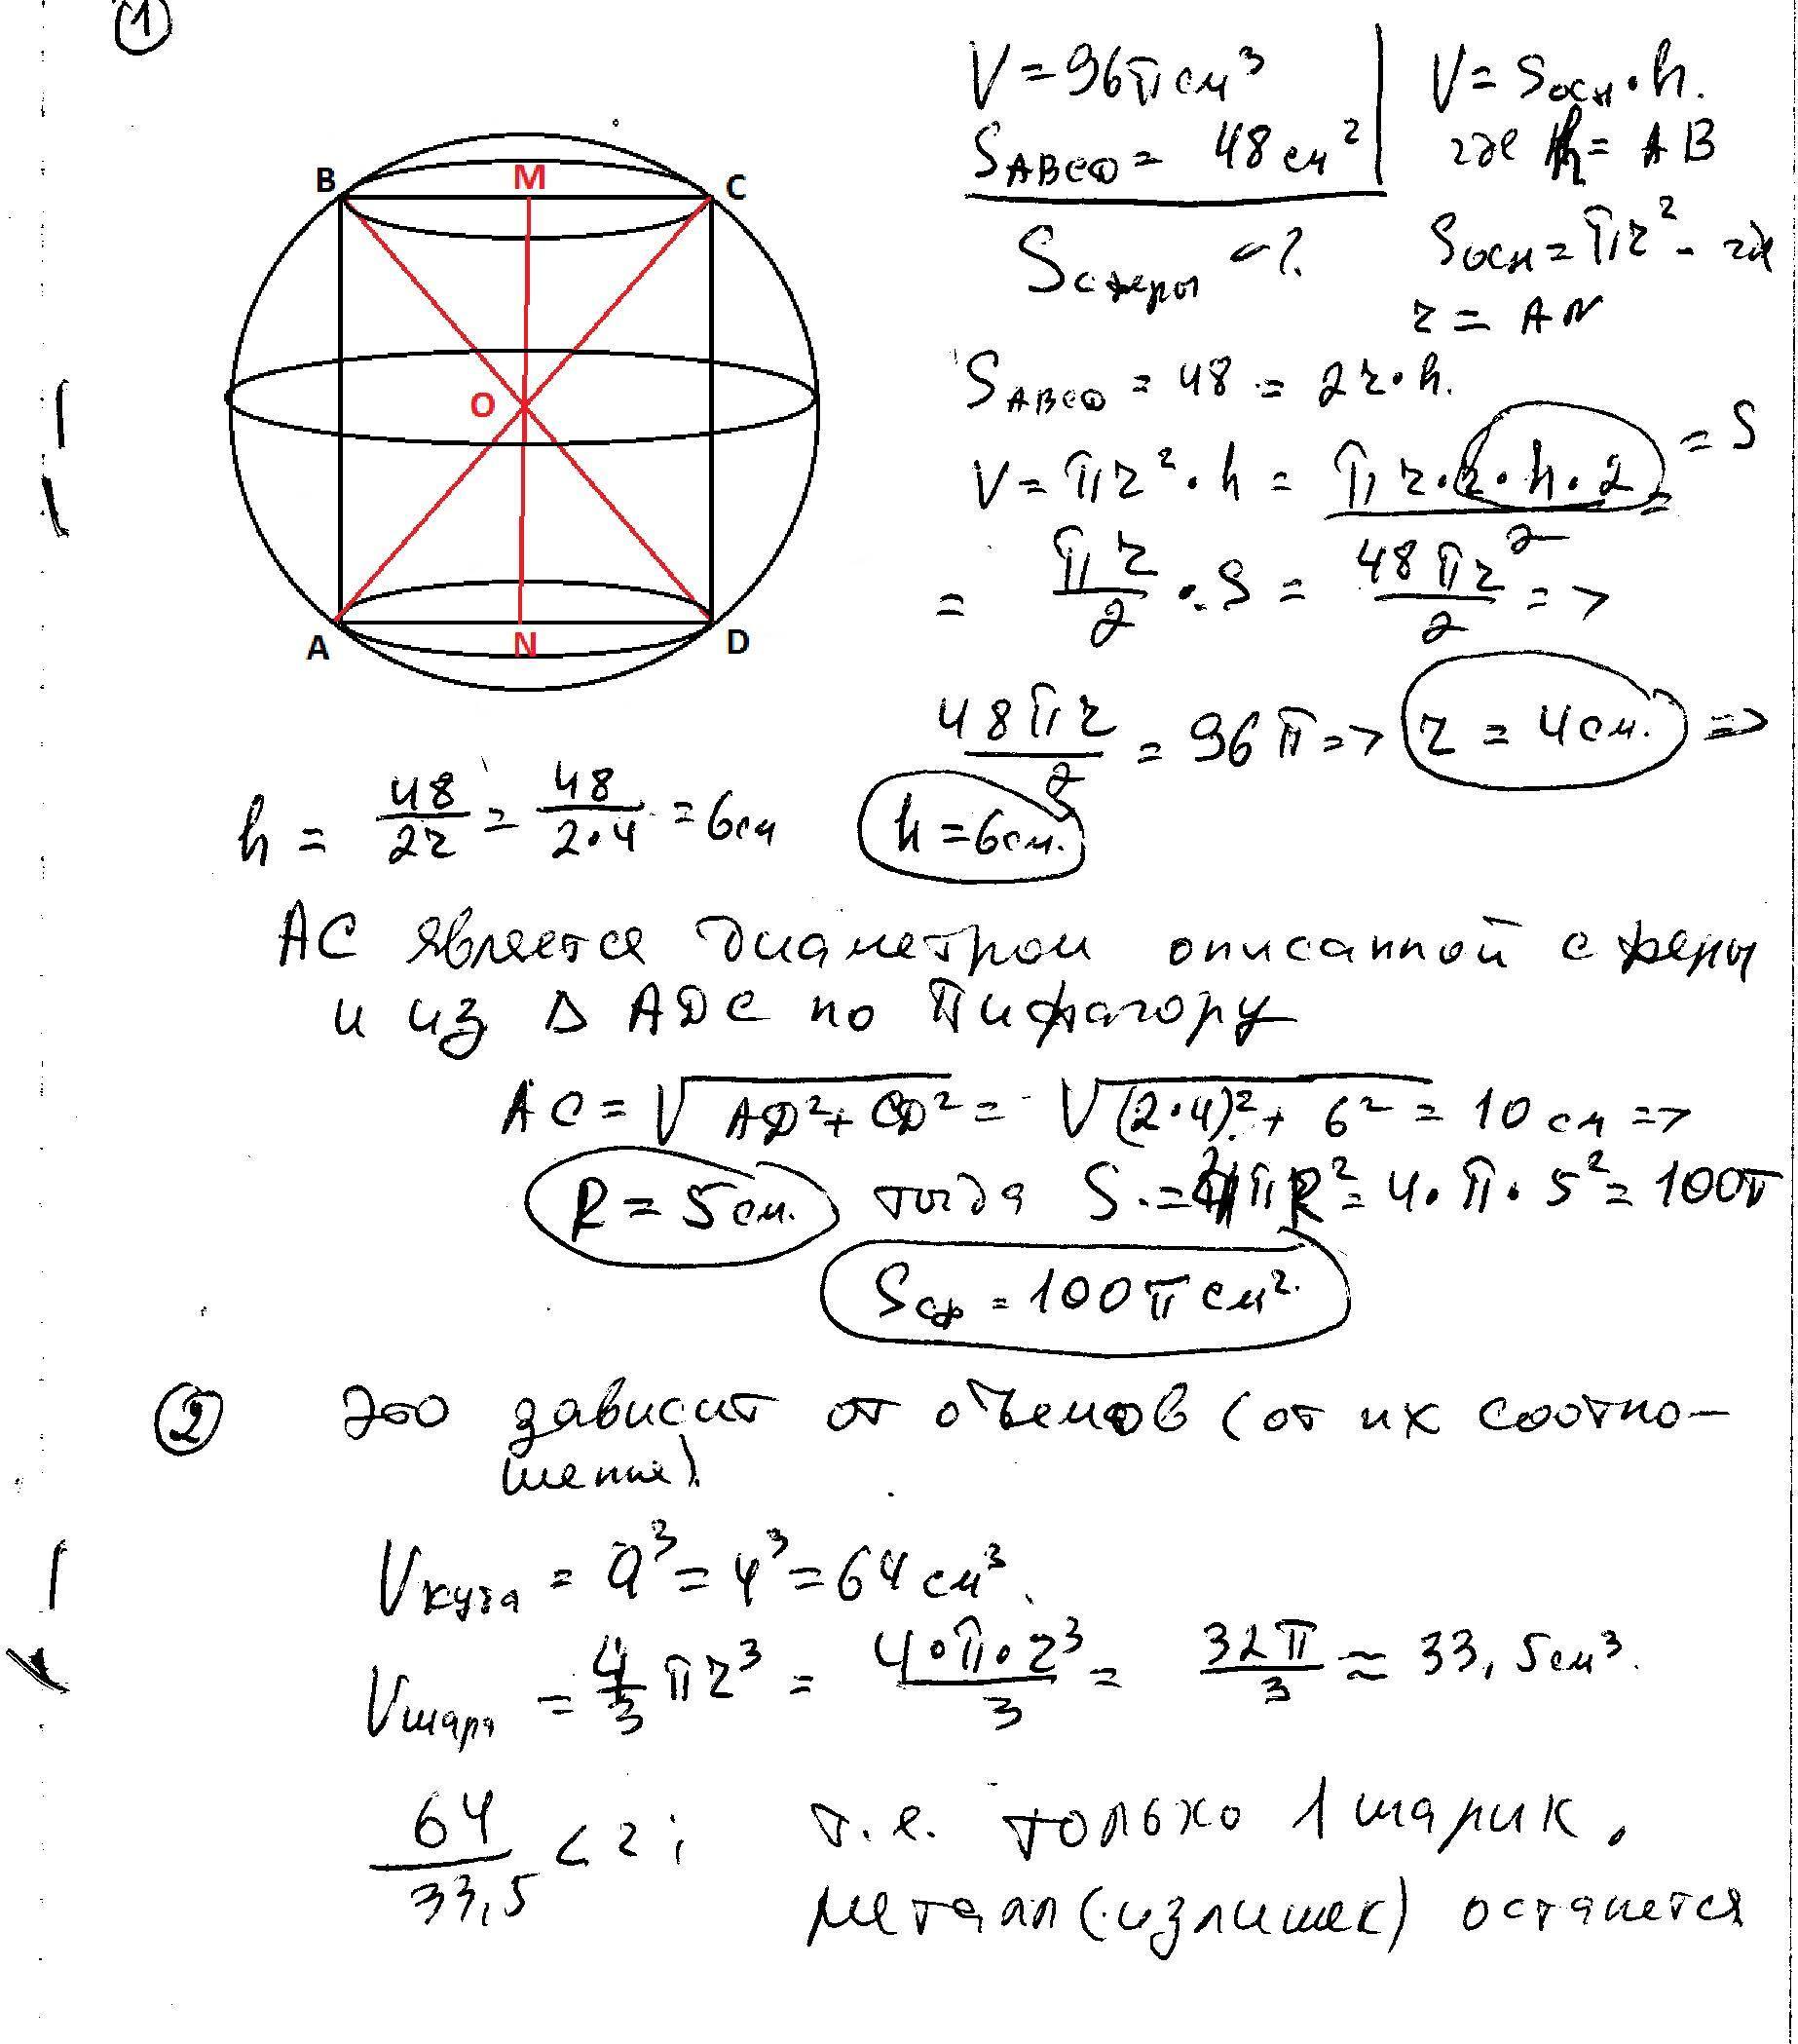 1
V = 96π см³
S ABCD = 48 см²
S сферы - ?
V = Sосн · h.
где h = AB
Sосн = πr² - где
r = AN
B M C
O
A N D
S ABCD = 48 = 2r · h.
V = πr² · h = πr·r·h·2 / 2 = = S
= πr/2 · S = 48πr/2 =>
48πr/2 = 96π => r = 4 см. =>
h = 48/2r = 48/2·4 = 6 см h = 6 см.
AC является диаметром описанной сферы
и из Δ ADC по Пифагору
AC = √AD² + CD² = √(2·4)² + 6² = 10 см =>
R = 5 см. тогда S = 4πR² = 4·π·5² = 100π
Sсф = 100π см².
2 Это зависит от объемов (от их соотно-
шение).
Vкуба = a³ = 4³ = 64 см³.
Vшара = 4/3 πr³ = 4·π·2³/3 = 32π/3 ≈ 33,5 см³.
64/33,5 < 2; т.е. только 1 шарик.
метал (излишек) останется